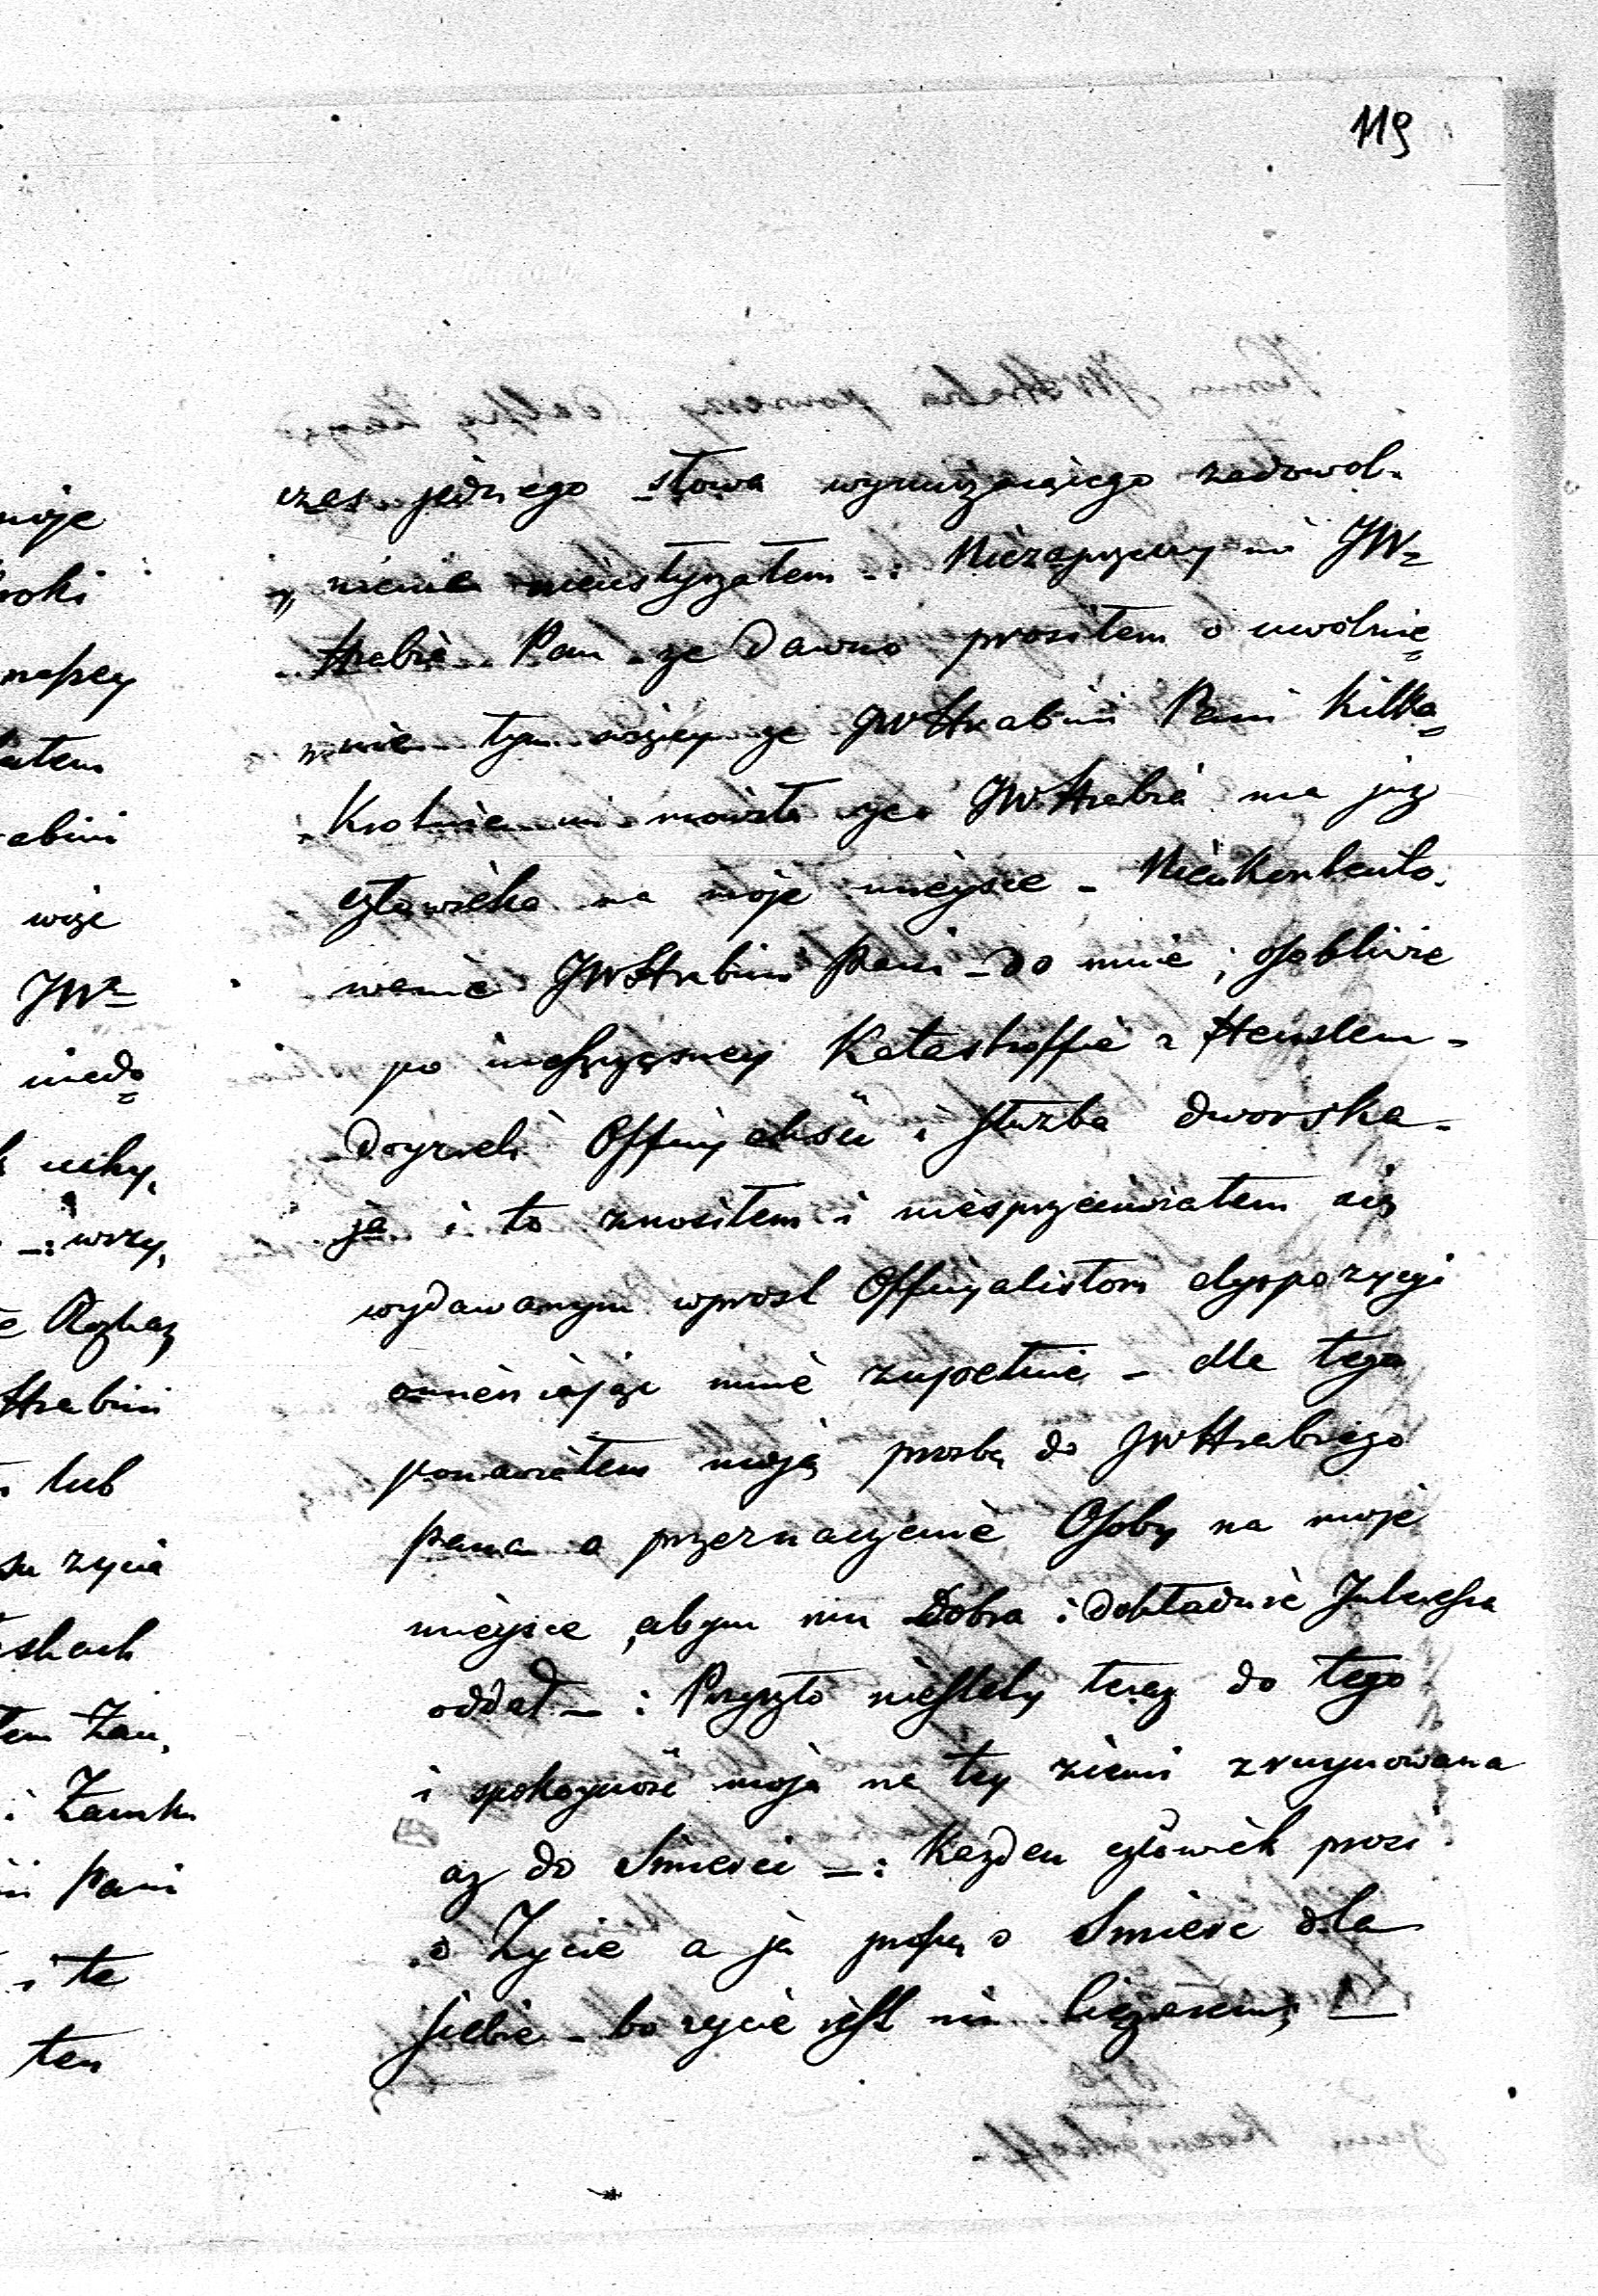 119
czas jednego słowa wyrażaiącego zadowol„
„nienie nieusłyszałem –: Niezaprzeczy mi JW„
Hrabia Pan ze dawno prosiłem o uwolnie„
„nie tym więcey ze JWHrabini Pani kilka„
krotnie mi mowiła ze JWHrabia ma juz
człowieka na moje mieysce – Nieukontento„
wanie JWHrabini Pani – do mnie, osobliwie
po niesczęsney Katastroffie z
Dozneli Officyaliści i służba dworska –
ja i to znosiłem i niesprzeciwiałem się
wydawanym wprost Officyalistom dyspozycyi
omieniając mnie zupełnie – dla tego
ponawiałem moją prosbę do JWHrabiego
Pana o przeznaczenie Osoby na moje
mieysce, abym mu Dobra i dokładnie Interessa
oddał –: Przyszło niestety teraz do tego
i spokoyność moja na tey ziemi zruynowana
az do Smierci –: Kazden człowiek prosi
o Zycie a ja proszę o Smierc dla
siebie – bo zycie iest mi Cięzarem, –
moje
naszey
abini
JW„
niedo„
Hrabini
lub
zycia
Zamku
Pani
i te
ten